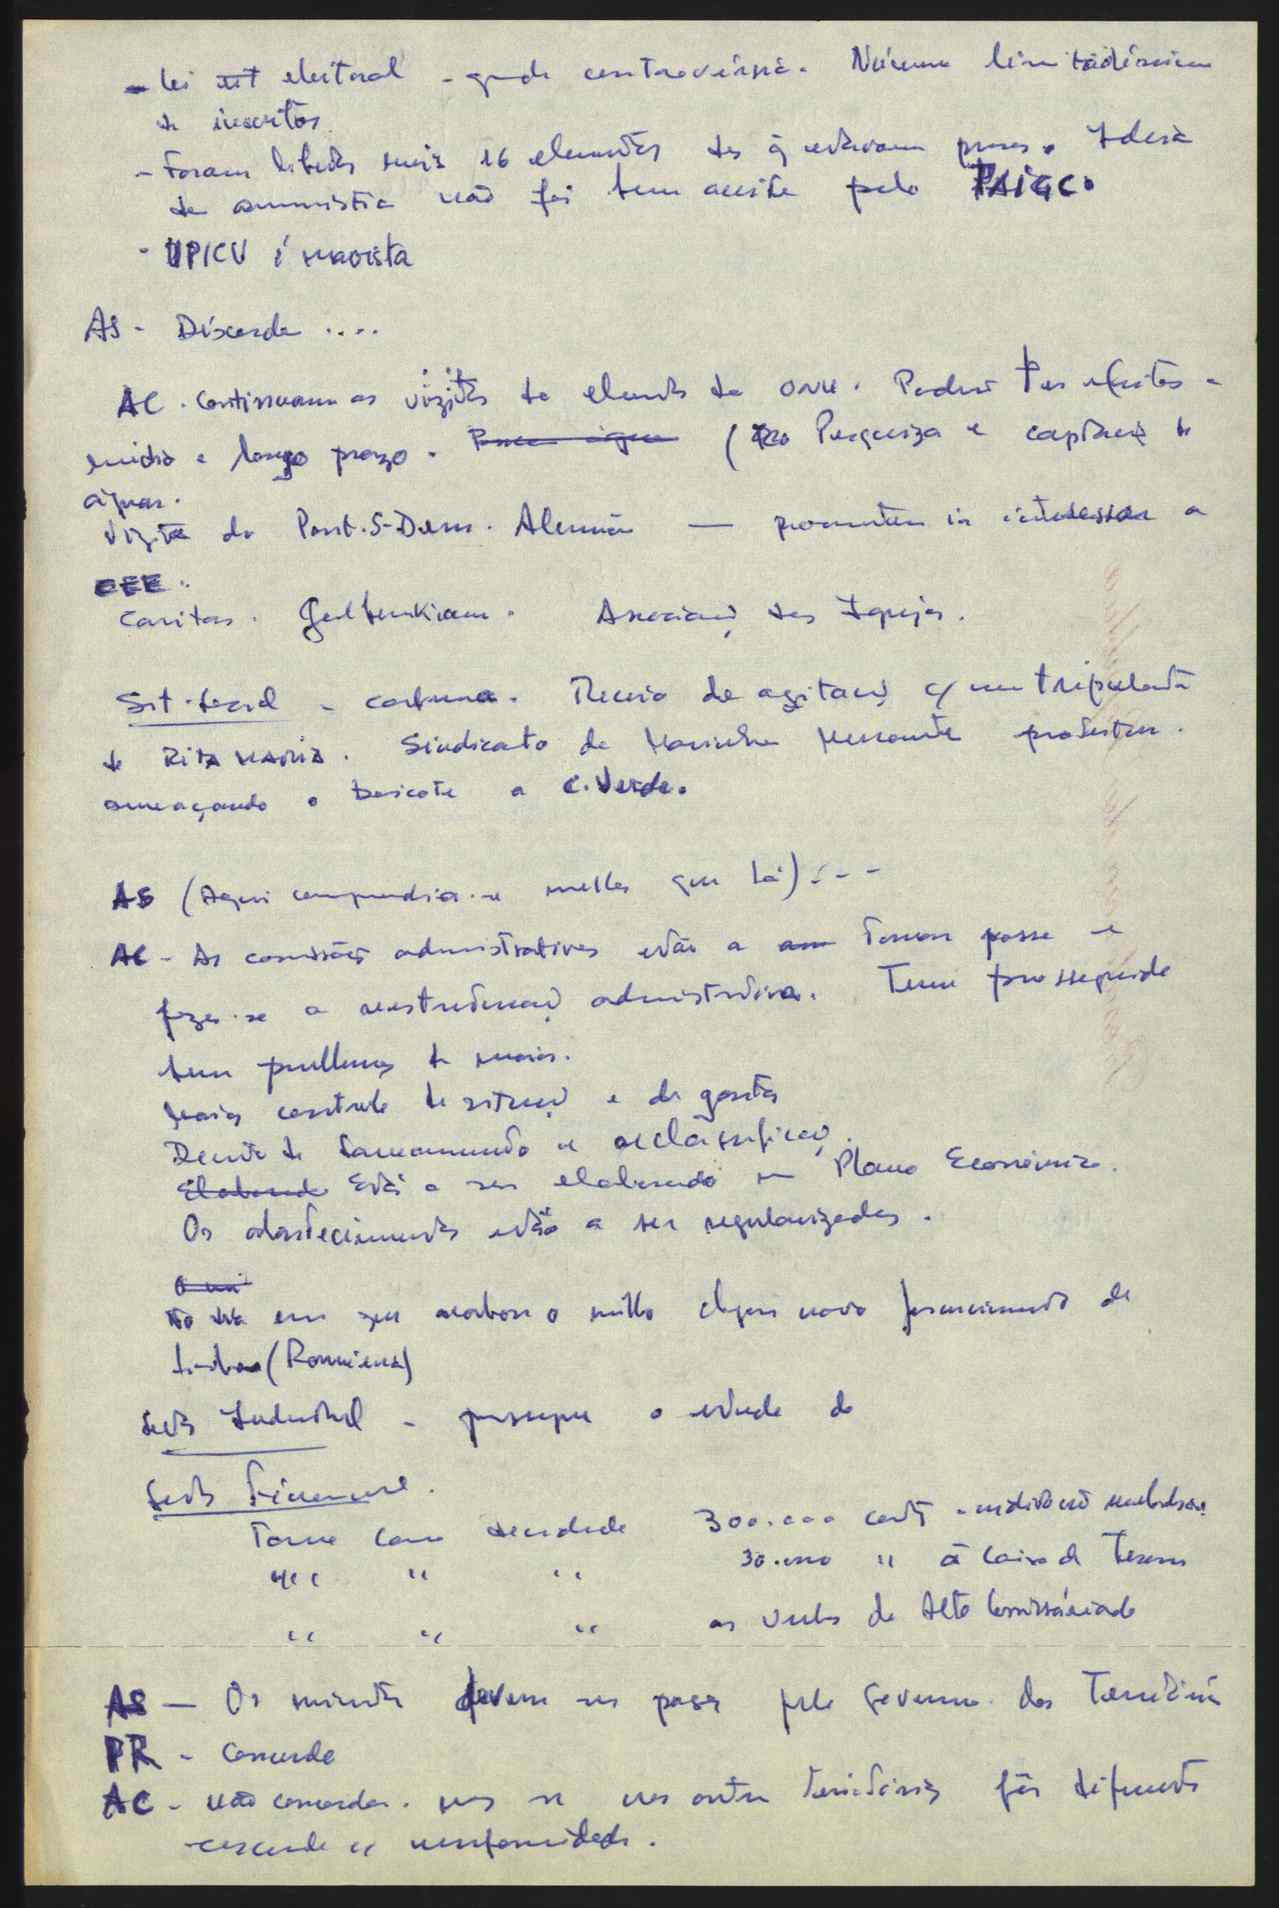 - Lei eleitoral - grande controvérsia. Número limitadíssimo
de inscritos
- Foram libertos mais 16 elementos dos q estavam presos. Ideia
de amnistia não foi bem aceite pelo PAIGC.
- UPICV é maoista
AS - Discorda ....
AC - Continuam as vizitas de elementos da ONU. Poderá ter efeitos a
médio e longo prazo. Pouca água ( Pesquiza e captação de
águas.
Vizita do Part. S-Dem. Alemão — prometeu ir interessar a
CEE.
Caritas. Gulbenkian. Associação das Igrejas.
Sit. Local - calma. Receio de agitação c/ um tripulante
do RITA MARIA. Sindicato da Marinha Mercante protestou.
ameaçando o boicote a C. Verde.
AS (Aqui compreendia-se melhor que lá) ...
AC - As comissões administrativas estão a tomar posse e
fazer-se a reestruturação administrativa. Tem prosseguido
sem problemas de maior.
Maior controle da situação e de gastos
Decreto de Saneamento e reclassificação.
Elaborado Está a ser elaborado um Plano Económico.
Os abastecimentos estão a ser regularizados.
em que acabar o milho chegou novo fornecimento de
Lisboa (Roménia)
Sector Industrial - prossegue o estudo do
Sector Financeiro.
Tome como decidido 300.000 contos
" " " 30.000 " à Caixa do Tesouro
" " " as verbas do Alto Comissariado
AS — Os devem ser pagos pelo Governo dos Territórios
PR - Concorda
AC - não concorda. mas se nos outros territórios fôr diferente
concorde c/ uniformidade.